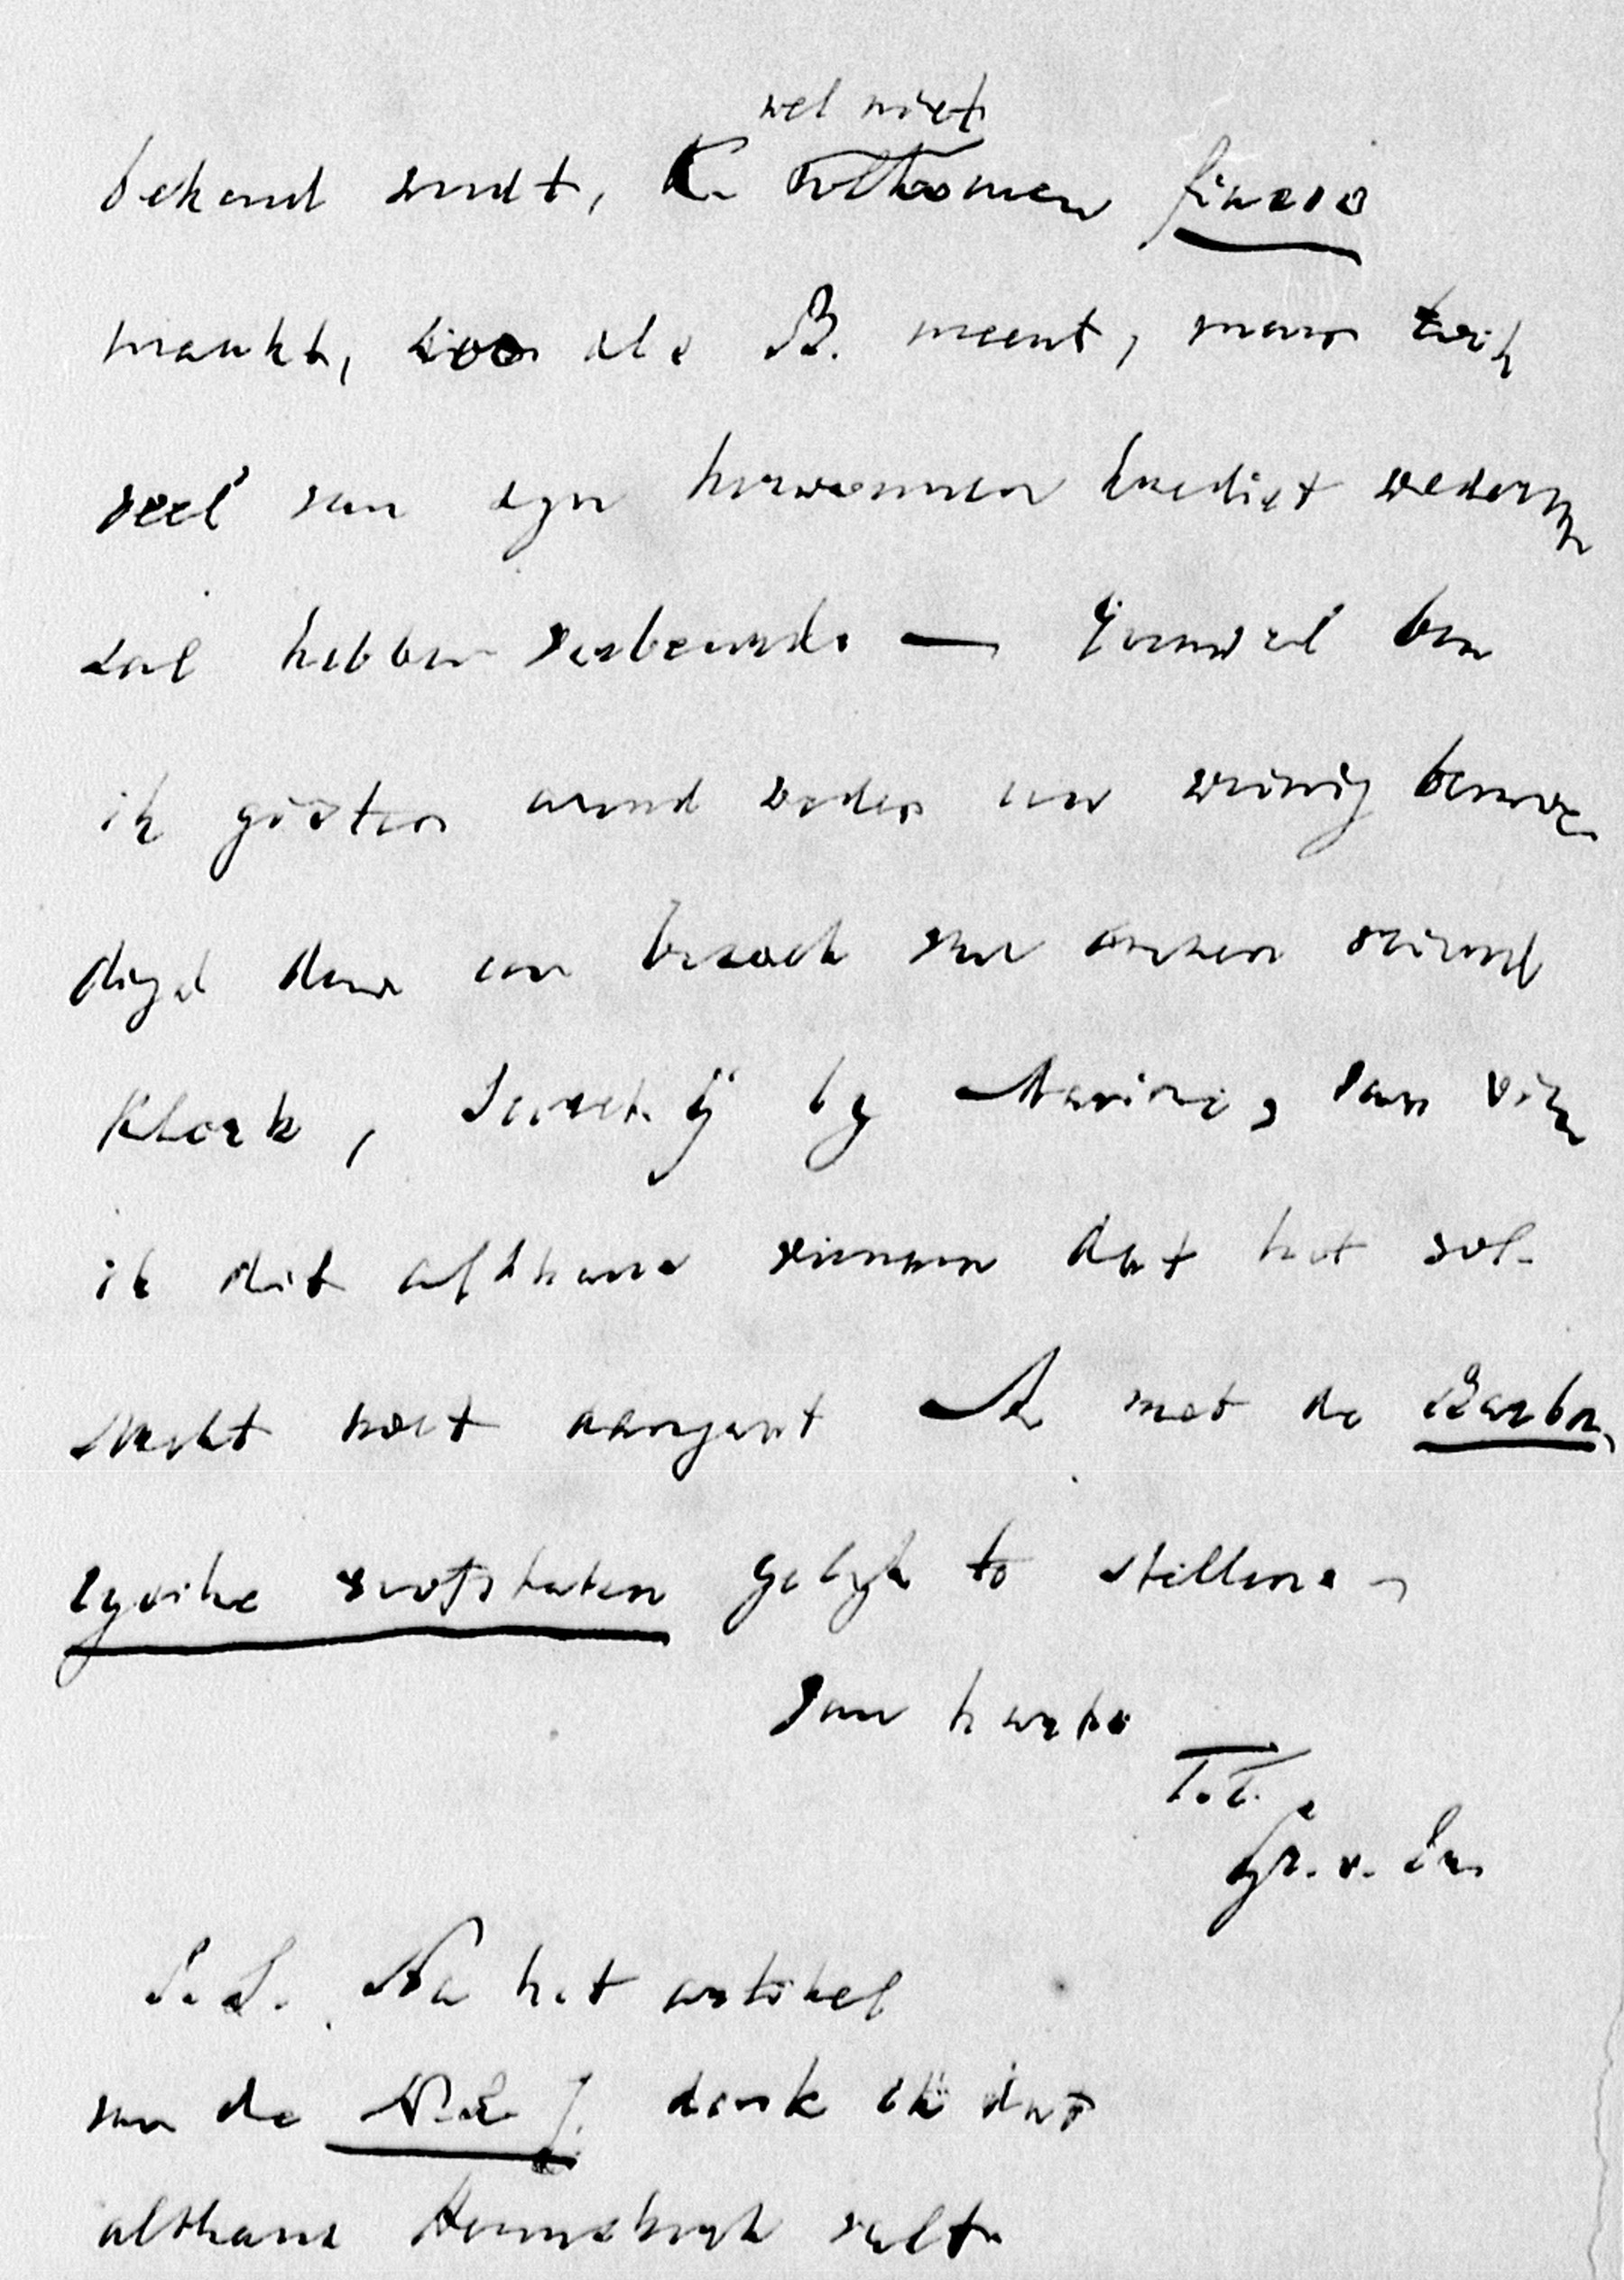 wel niet
bekend wordt, K. volkomen fiasco
maakt, zoo als B. meent, maar zich
veel van zijn herwonnen krediet wederom
zal hebben verbeurd. — Hoewel ben
ik gisteren avond zeden een weinig bemoe-
digd door een bezoek van onzen vriend
Klerk, Secret. bij Marine, van wien
ik dit althans vernam dat het vol-
strekt niet aangaat A met de Barba-
rijsche roofstaten gelijk te stellen.
van harte
T.T.
Gr. v. Pr.
P.S. Na het artikel
van de N.R. denk ik dat
althans Heemskerk valt.